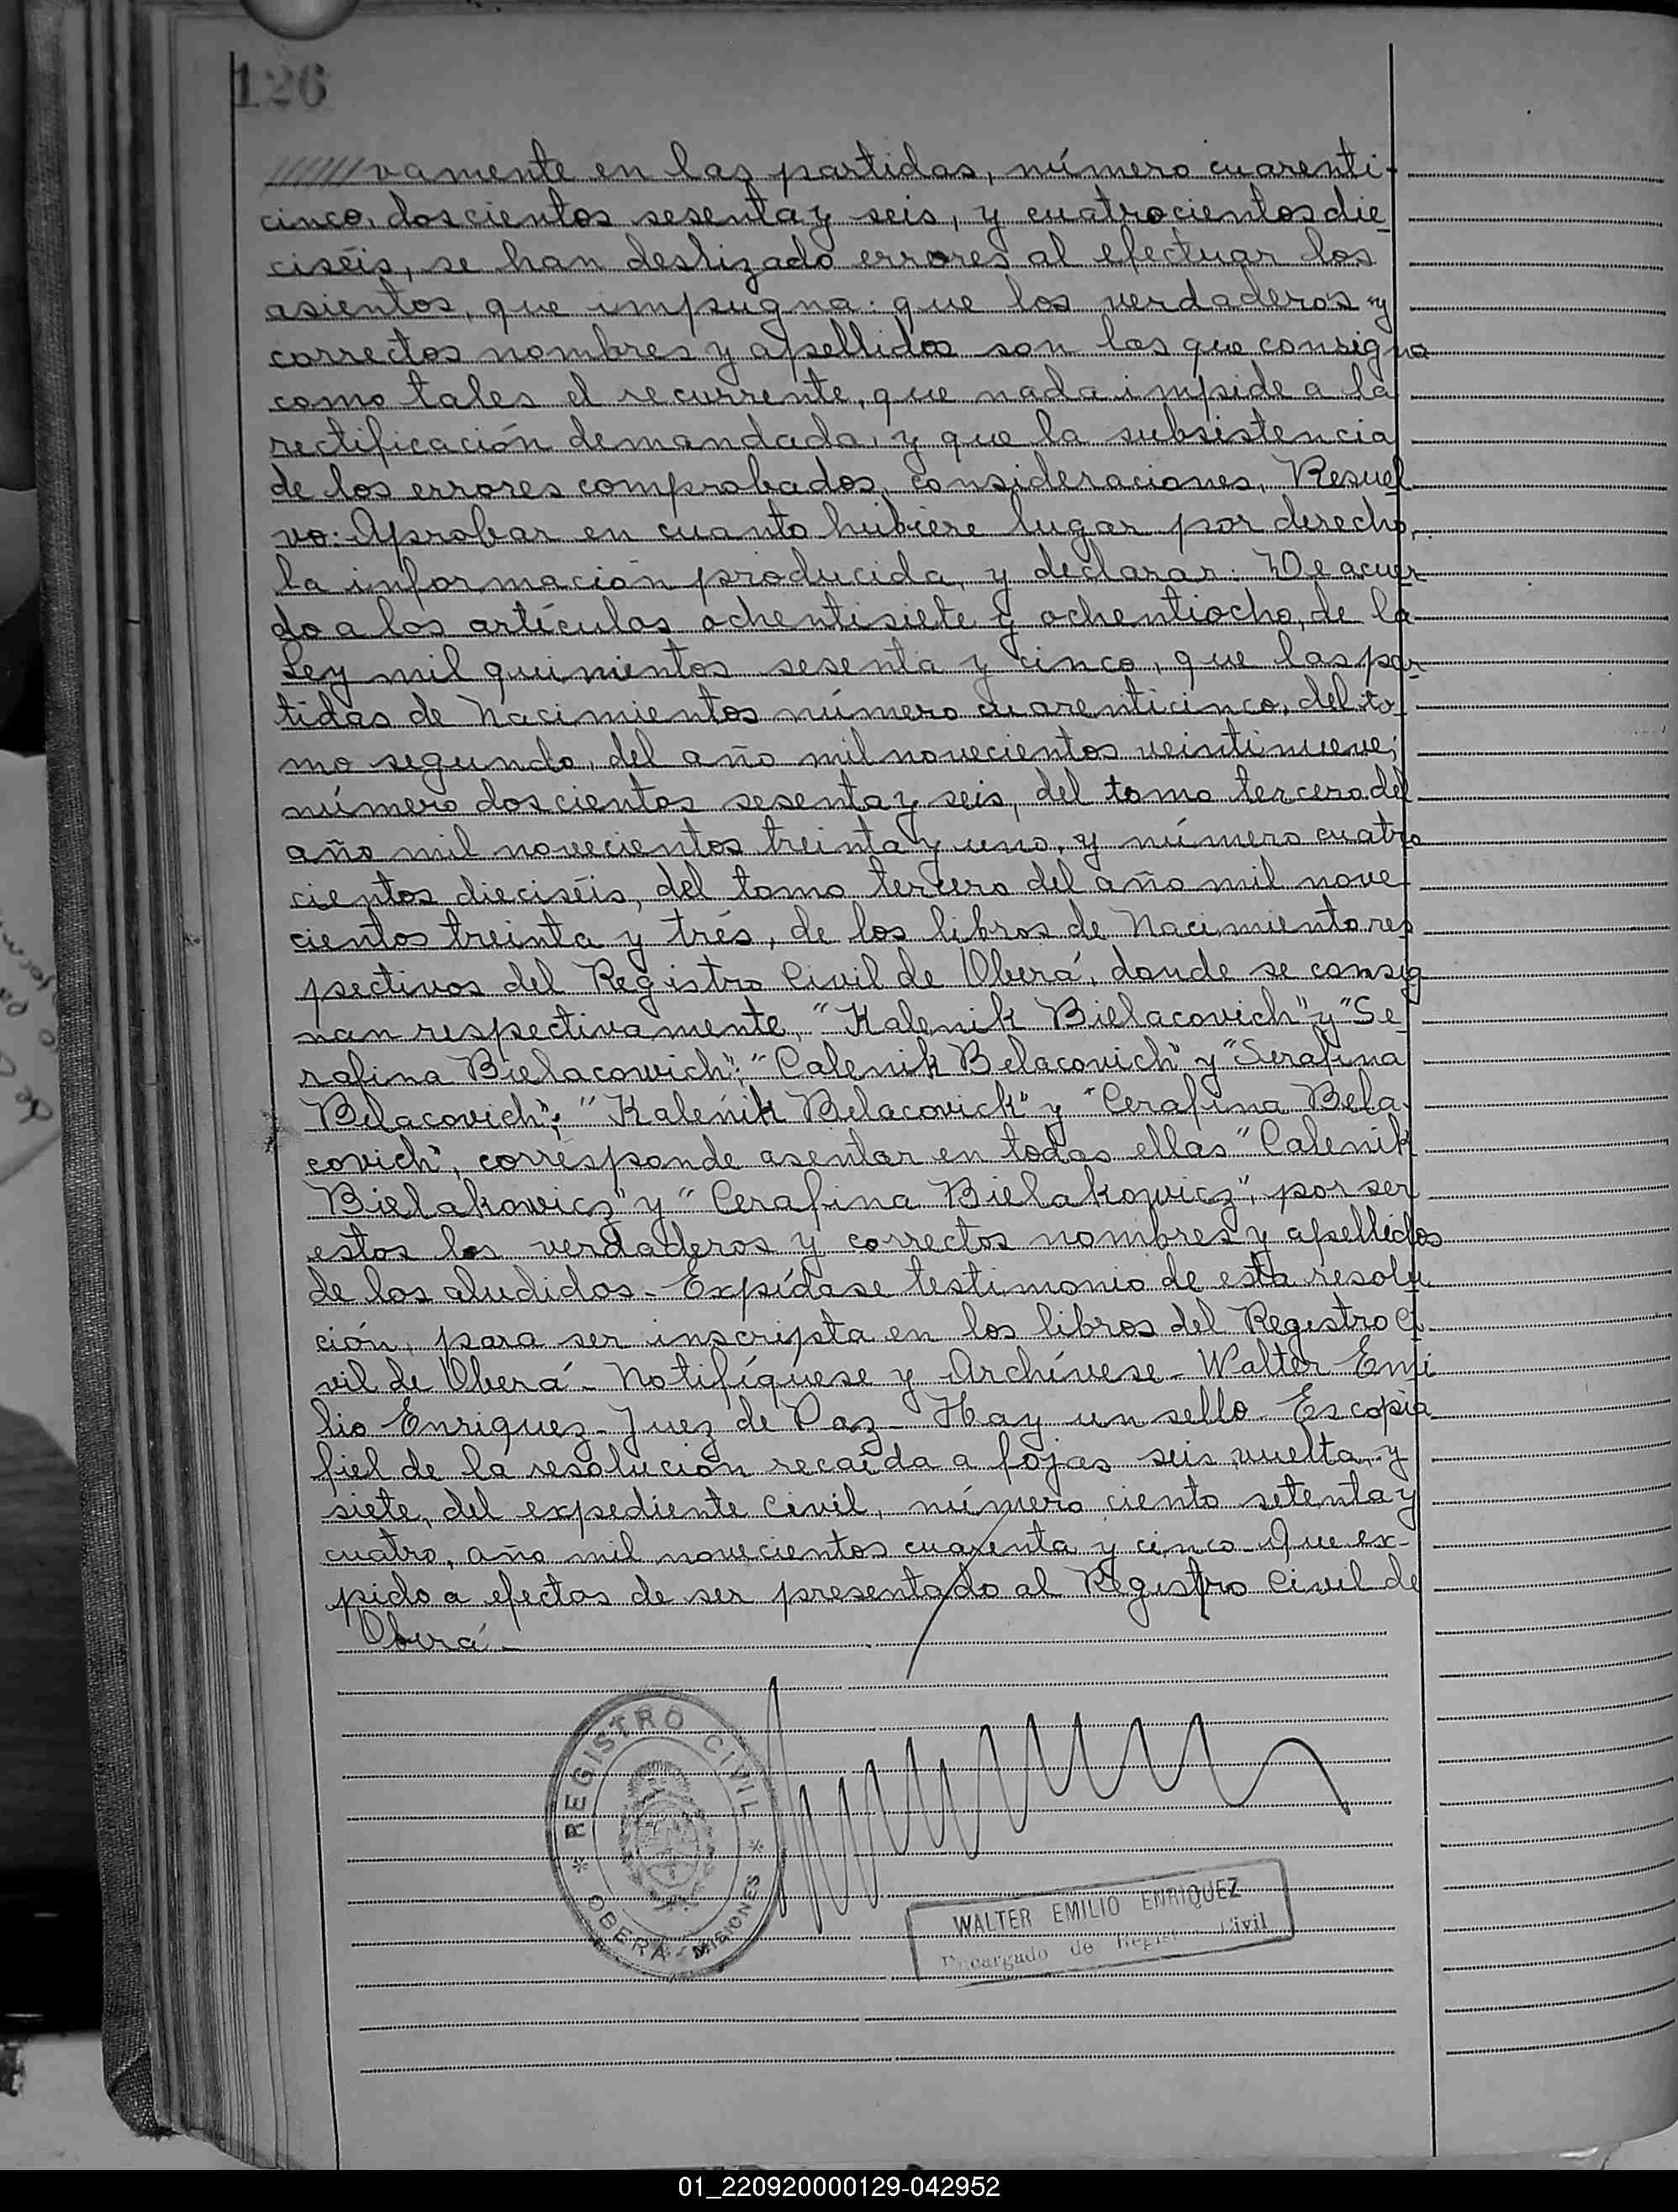 126
vamente en las partidas, número cuarenti-
cinco, doscientos sesenta y seis, y cuatrocientos die
ciséis, se han deslizado errores al efectuar los
asientos, que impugna: que los verdaderos y
correctos nombres y apellidos son los que consigna
como tales el recurrente, que nada impide a la
rectificación demandada, y que la subsistencia
de los errores comprobados, consideraciones, Resuel
vo: Aprobar en cuanto hubiere lugar por derecho,
la información producida, y declarar: De acuer
do a los artículos ochentisiete y ochentiocho, de la
Ley mil quinientos sesenta y cinco, que las par
tidas de Nacimientos número cuarenticinco, del to
mo segundo, del año mil novecientos veintinueve;
número doscientos sesenta y seis, del tomo tercero del
año mil novecientos treinta y uno, y número cuatro
cientos dieciséis, del tomo tercero del año mil nove
cientos treinta y trés, de los libros de Nacimiento res
pectivos del Registro Civil de Oberá, donde se consig
nan respectivamente, "Kalenik Bielacovich" y "Se
rafina Bielacowich"; "Calenik Belacovich" y "Serafina
Belacovich"; "Kalenik Belacovick" y "Cerafina Bela
covich", corresponde asentar en todas ellas "Calenik
Bielakowicz" y "Cerafina Bielakowicz", por ser
estos los verdaderos y correctos nombres y apellidos
de los aludidos.- Expídase testimonio de esta resolu
ción, para ser inscripta en los libros del Registro Ci
vil de Oberá.- Notifíquese y Archívese.- Walter Emi
lio Enriquez- Juez de Paz- Hay un sello- Es copia
fiel de la resolución recaída a fojas seis vuelta, y
siete, del expediente Civil, número ciento setenta y
cuatro, año mil novecientos cuarenta y cinco- Que ex-
pido a efectos de ser presentado al Registro Civil de
Oberá.-
* REGISTRO CIVIL *
OBERA - MISIONES
WALTER EMILIO ENRIQUEZ
Encargado de Registro Civil
01_220920000129-042952